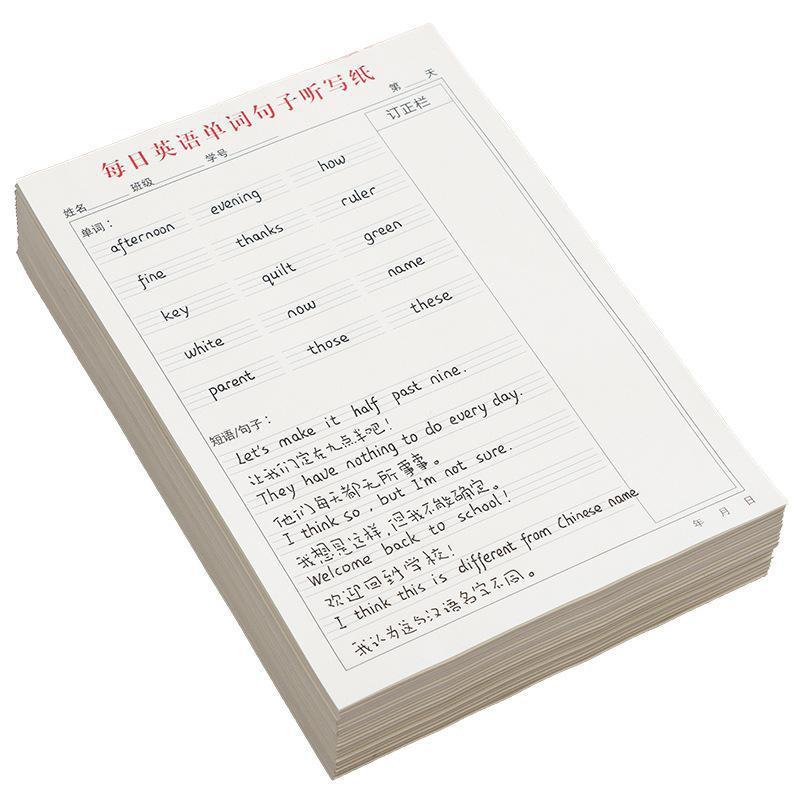 每日英语单词句子听写纸
姓名 班级 学号 第 天
单词： 订正栏
afternoon evening how
fine thanks ruler
key quilt green
white now name
parent those these
短语/句子：
Let's make it half past nine.
让我们定在九点半吧！
They have nothing to do every day.
他们每天都无所事事。
I think so, but I'm not sure.
我想是这样，但我不能确定。
Welcome back to school!
欢迎回到学校！
I think this is different from Chinese name
我认为这与汉语名字不同。
年 月 日